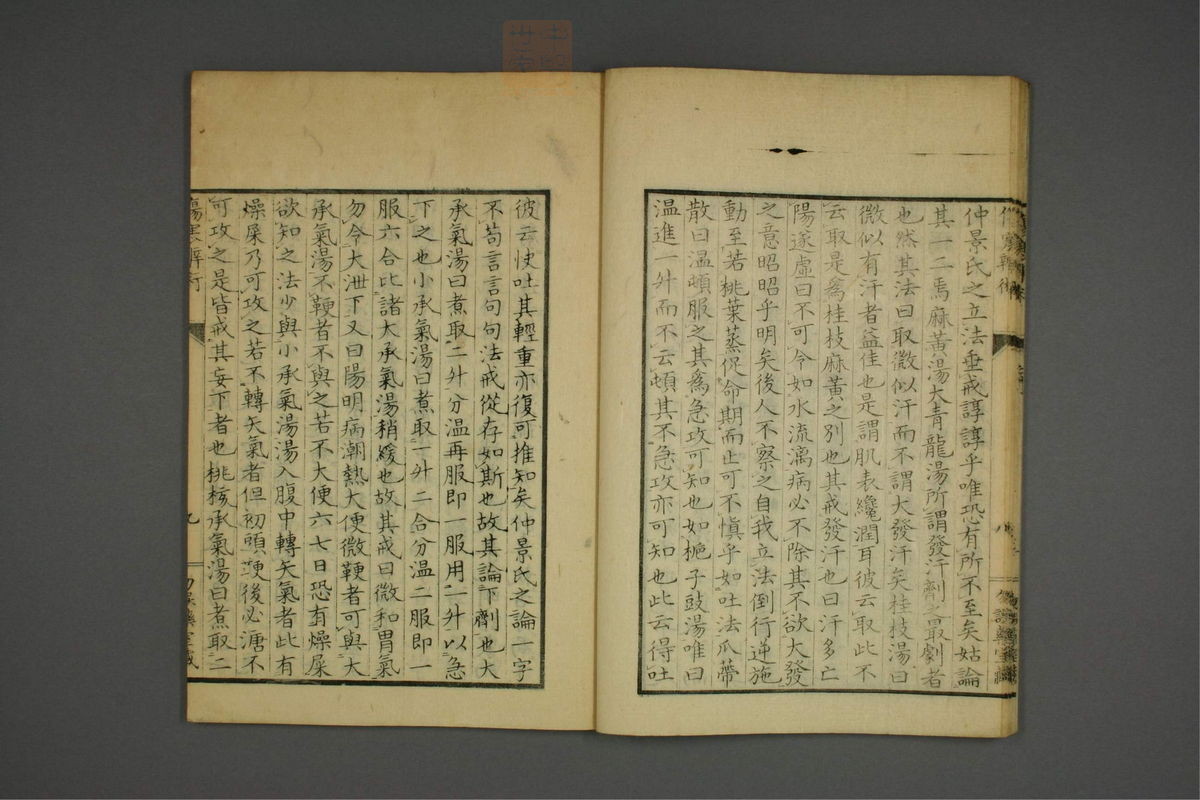 仲景氏之立法垂戒諄諄乎唯恐有所不至矣姑論
其一二焉麻黃湯大青龍湯所謂發汗劑之最劇者
也然其法曰取微似汗而不謂大發汗矣桂枝湯曰
微似有汗者益佳也是謂肌表纔潤耳彼云取此不
云取是為桂枝麻黃之別也其戒發汗也曰汗多亡
陽遂虛曰不可令如水流漓病必不除其不欲大發
之意昭昭乎明矣後人不察之自我立法倒行逆施
動至若桃葉蒸促命期而止可不慎乎如吐法瓜蔕
散曰溫頓服之其為急攻可知也如梔子豉湯唯曰
溫進一升而不云頓其不急攻亦可知也此云得吐
彼云快吐其輕重亦復可推知矣仲景氏之論一字
不苟言言句句法戒從存如斯也故其論下劑也大
承氣湯曰煮取二升分溫再服即一服用一升以急
下之也小承氣湯曰煮取一升二合分溫二服即一
服六合比諸大承氣湯稍緩也故其戒曰微和胃氣
勿令大泄下又曰陽明病潮熱大便微鞕者可與大
承氣湯不鞕者不與之若不大便六七日恐有燥屎
欲知之法少與小承氣湯湯入腹中轉矢氣者此有
燥屎乃可攻之若不轉矢氣者但初頭鞕後必溏不
可攻之是皆戒其妄下者也桃核承氣湯曰煮取二
傷寒辨術
九